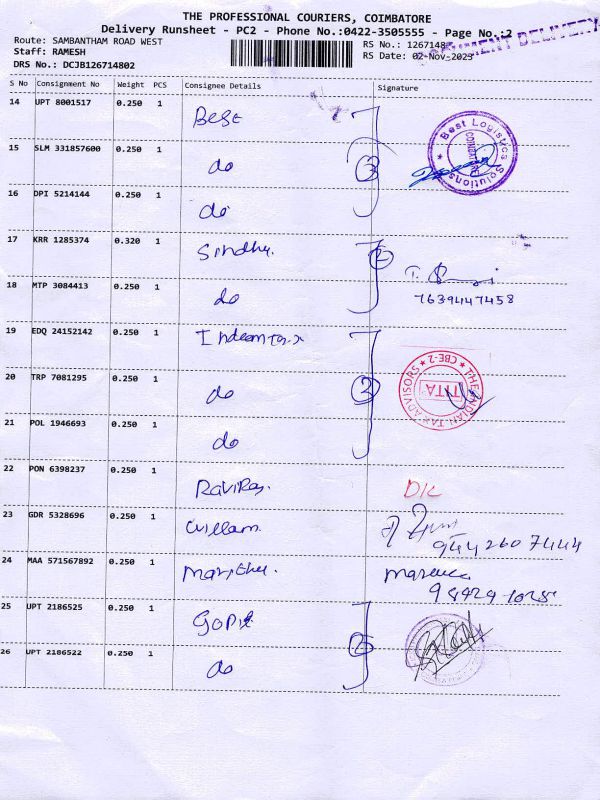 THE PROFESSIONAL COURIERS, COIMBATORE
Delivery Runsheet - PC2 - Phone No.:0422-3505555 - Page No.:2
Route: SAMBANTHAM ROAD WEST RS No.: 1267148
Staff: RAMESH RS Date: 02-Nov-2023
DRS No.: DCJB126714802
S No Consignment No Weight PCS Consignee Details Signature
14 UPT 8001517 0.250 1 Best
15 SLM 331857600 0.250 1 do 3
Best Logistics Solutions
16 DPI 5214144 0.250 1 do
17 KRR 1285374 0.320 1 Sindhu. 2
18 MTP 3084413 0.250 1 do 7639447458
19 EDQ 24152142 0.250 1
20 TRP 7081295 0.250 1 do 3
THE INDIAN TAX ADVISORS ★ CBE-2 ★
TITA
21 POL 1946693 0.250 1 do
22 PON 6398237 0.250 1
23 GDR 5328696 0.250 1 9442607444
24 MAA 571567892 0.250 1
25 UPT 2186525 0.250 1 Gopi
26 UPT 2186522 0.250 1 do